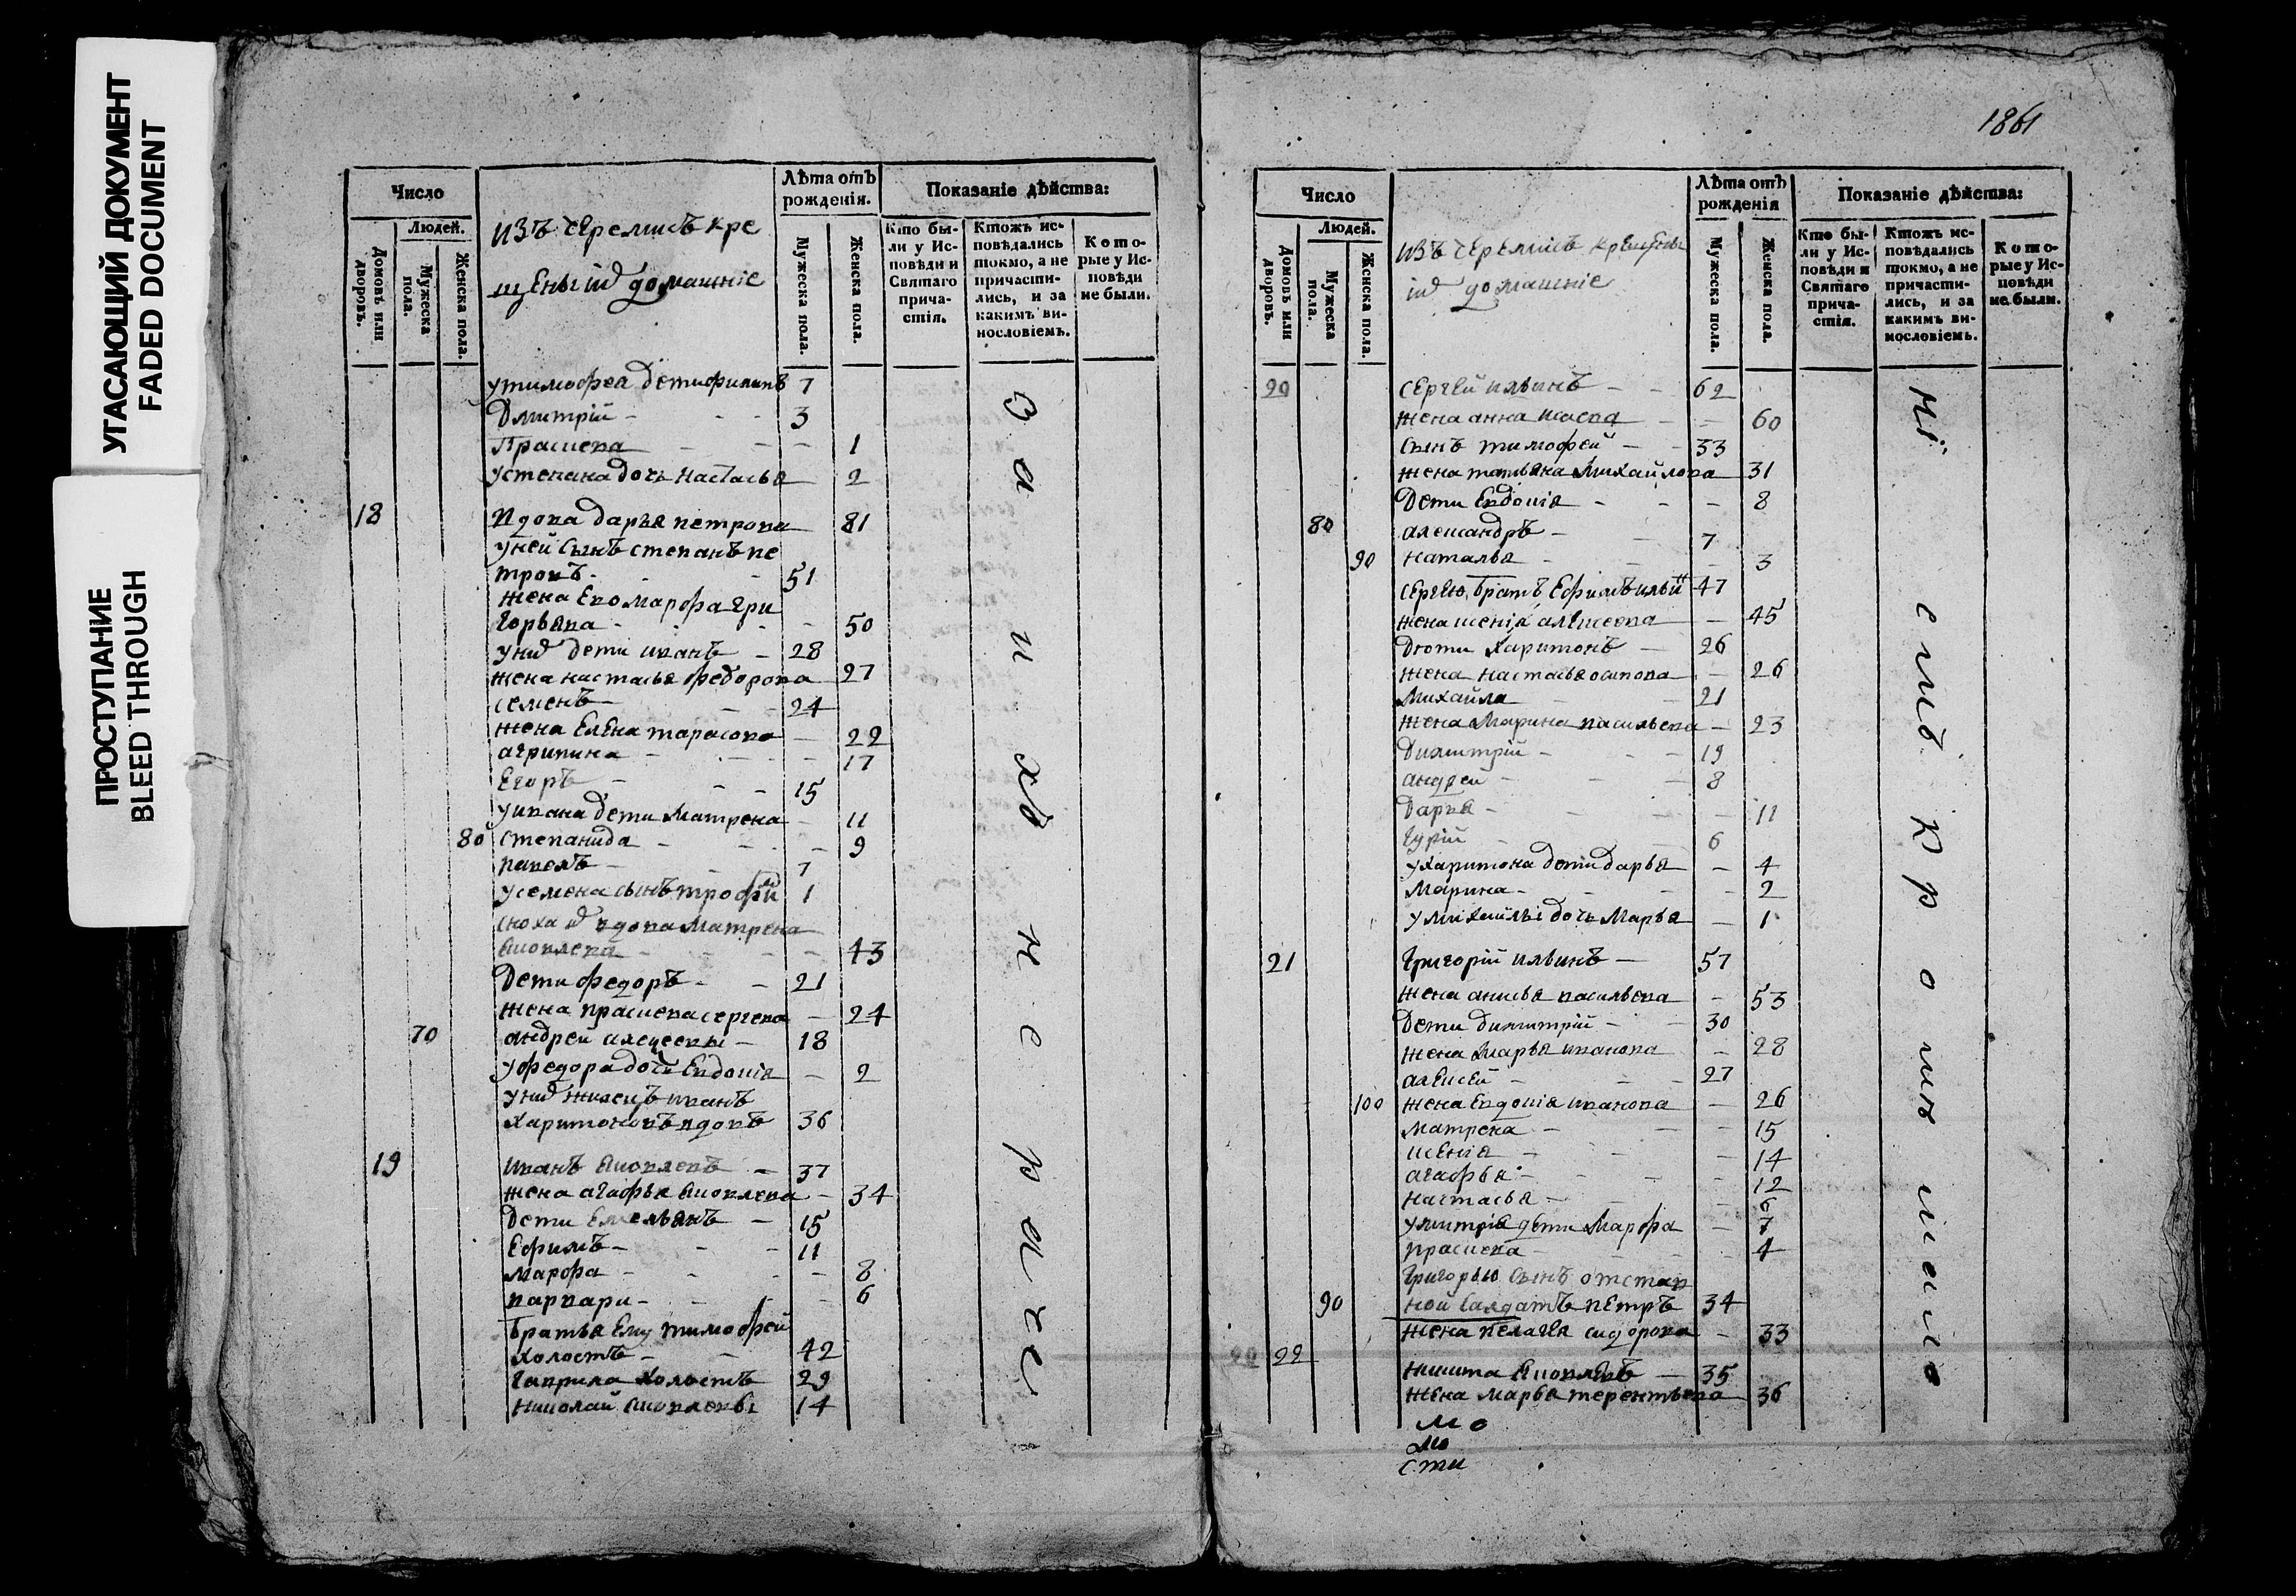 УГАСАЮЩИЙ ДОКУМЕНТ
FADED DOCUMENT
ПРОСТУПАНИЕ
BLEED THROUGH
Число
Людей.
Домовъ или дворовъ.
Мужеска пола.
Женска пола.
изъ черемисъ кре
щеныiя домашнiе
Лѣта отъ рожденія.
Мужеска пола.
Женска пола.
Показаніе дѣйства:
Кто бы-
ли у Ис-
повѣди и
Святаго
прича-
стія.
Ктожъ ис-
повѣдались
токмо, а не
причасти-
лись, и за
какимъ ви-
нословіемъ.
Кото-
рые у Ис-
повѣди
не были.
у тимофея дети филипъ 7
Дмитрiй 3
Праскева 1
у степана дочь настасья 2
18 вдова дарья петрова 81
у ней сынъ степанъ пе
тровъ 51
жена его марфа гри
горьева 50
у них дети иванъ 28
жена настасья федорова 27
семенъ 24
жена елена тарасова 22
агрипина 17
Егоръ 15
у ивана дети матрена 11
80 степанида 9
павелъ 7
у семена сынъ трофiм 1
сноха их вдова матрена
яковлева 43
Дети федоръ 21
жена праскева сергева 24
70 андрей алексеевы 18
у федора дочь Евдокiя 2
у них жилецъ иванъ
харитоновъ вдовъ 36
19 иванъ яковлевъ 37
жена агафья яковлева 34
Дети Емельянъ 15
Ефимъ 11
марфа 8
варвара 6
братья Ему тимофей
холостъ 42
гаврила холостъ 29
николай яковлевы 14
О н и х ъ н е р а ч е
1861
Число
Людей.
Домовъ или дворовъ.
Мужеска пола.
Женска пола.
изъ черемисъ крещены
iя домашнiе
Лѣта отъ рожденія
Мужеска пола.
Женска пола.
Показаніе дѣйства:
Кто бы-
ли у Ис-
повѣди и
Святаго
прича-
стія.
Ктожъ ис-
повѣдались
токмо, а не
причасти-
лись, и за
какимъ ви-
нословіемъ.
Кото-
рые у Ис-
повѣди
не были.
20 сергей ильинъ 62
жена анна 60
сынъ тимофей 33
жена татьяна михайлова 31
Дети Евдокiя 8
80 александръ 7
90 наталья 3
сергею братъ Ефимъ ильин 47
жена ксенiя алексеева 45
Дети харитонъ 26
жена настасья осипова 26
михайла 21
жена марина васильева 23
Димитрiй 19
андрей 8
Дарья 11
гурiй 6
у харитона дети дарья 4
марина 2
у михайлы дочь марья 1
21 григорiй ильинъ 57
жена анисья васильева 53
Дети димитрiй 30
жена марья иванова 28
алексей 27
100 жена Евдокiя иванова 26
матрена 15
ксенiя 14
агафья 12
настасья 6
у митрiя дети марфа 7
праскева 4
григорью сынъ отстав
90 ной салдатъ петръ 34
жена пелагея сидорова 33
22 никита яковлевъ 35
жена марья терентьева 36